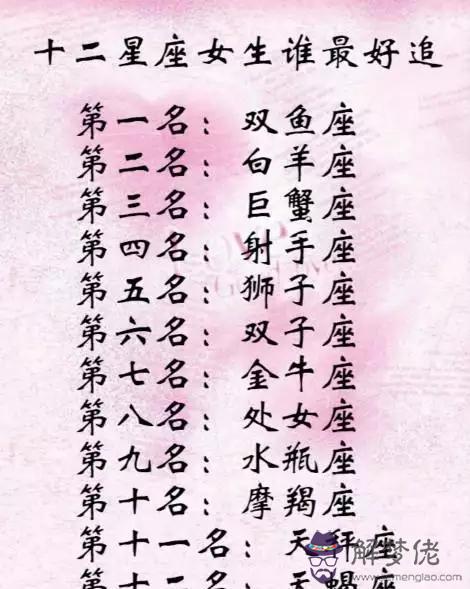 十二星座女生谁最好追
第一名：双鱼座
第二名：白羊座
第三名：巨蟹座
第四名：射手座
第五名：狮子座
第六名：双子座
第七名：金牛座
第八名：处女座
第九名：水瓶座
第十名：摩羯座
第十一名：天秤座
第十二名：天蝎座
解梦佬